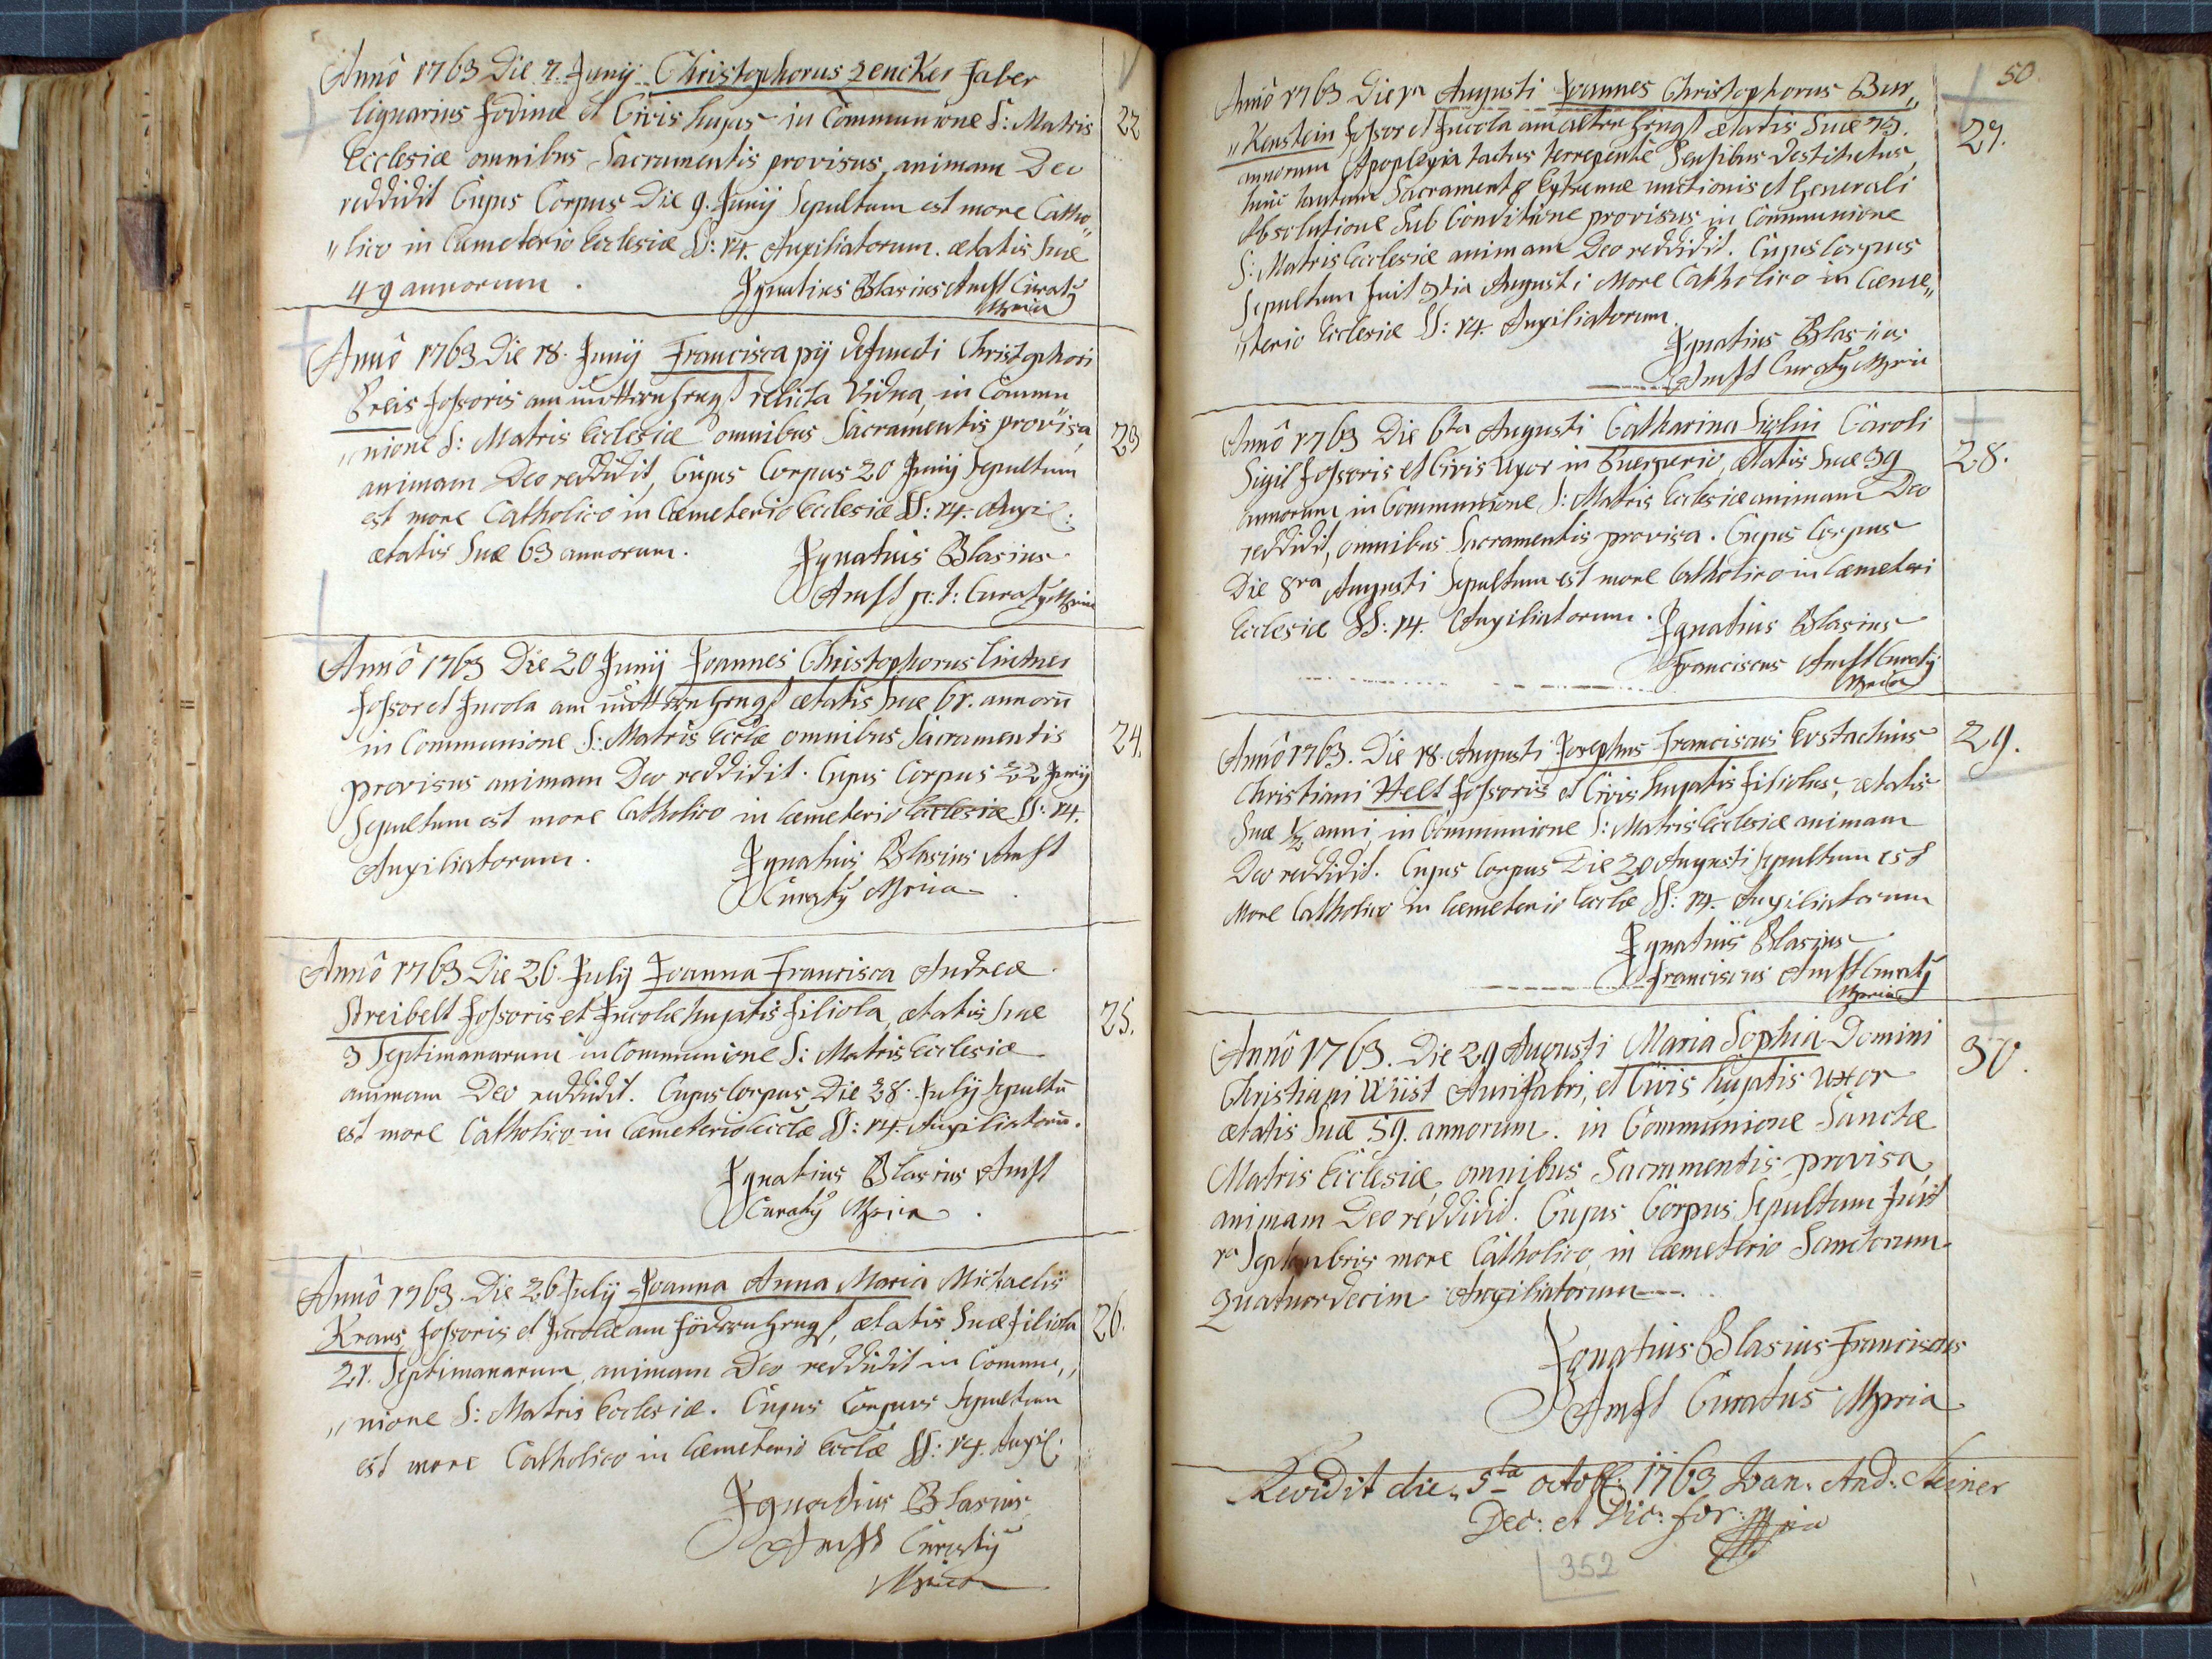 Anno 1763 Die 7. Junij Christophorus Zencker Faber
lignarius Fodinæ et Civis hujus in Communione S: Matris
Ecclesiæ omnibus Sacramentis provisus, animam Deo
reddidit Cujus Corpus Die 9. Junij Sepultum est more Catho„
„lico in Cæmeterio Ecclesiæ SS: 14. Auxiliatorum. ætatis suæ
49 annorum.
Ignatius Blasius Anst Curatq
Mpria
22
Anno 1763 Die 18. Junij Francisca pij defuncti Christophori
Preis Fossoris am relicta Vidua, in Commu
„nione S: Matris Ecclesiæ omnibus Sacramentis provisa
animam Deo reddidit, Cujus Corpus 20 Junij Sepultum
est more Catholico in Cæmeterio Ecclesiæ SS: 14. Auxil:
ætatis suæ 63 annorum.
Ignatius Blasius
Anst p: t: Curatq Mpria
23
Anno 1763 Die 20 Junij Joannes Christophorus Lintner
Fossor et Incola am ætatis suæ 61. annorū
in Communione S: Matris Ecclæ omnibus Sacramentis
provisus animam Deo reddidit. Cujus Corpus 22 Junij
Sepultum est more Catholico in Cæmeterio Ecclesiæ SS: 14.
Auxiliatorum.
Ignatius Blasius Anst
Curatq Mpria
24.
Anno 1763 Die 26. Julij Joanna Francisca Andreæ
Streibelt Fossoris et Incolæ hujatis Filiola, ætatis suæ
3 Septimanarum in Communione S: Matris Ecclesiæ
animam Deo reddidit. Cujus Corpus Die 28. Julij Sepultū
est more Catholico in Cæmeterio Ecclæ SS: 14. Auxiliatorū.
Ignatius Blasius Anst
Curatq Mpria
25.
Anno 1763. Die 26 Julij Joanna Anna Maria Michaelis
Kraus Fossoris et Incolæ am ætatis suæ Filiola
21. Septimanarum, animam Deo reddidit in Commu„
„nione S: Matris Ecclesiæ. Cujus Corpus Sepultum
est more Catholico in Cæmeterio Ecclæ SS: 14. Auxil:
Ignatius Blasius
Anst Curatq
Mpria
26.
50
Anno 1763 Die 1a Augusti Joannes Christophorus Bur„
„Kenstein Fossor et Incola am ætatis suæ 75.
annorum Apoplexia tactus derrepente Sensibus destitutus,
hinc tantum Sacramento Extremæ unctionis et Generali
Absolutione Sub Conditione provisus in Communione
S: Matris Ecclesiæ animam Deo reddidit. Cujus Corpus
Sepultum fuit 3tia Augusti More Catholico in Cæme„
„terio Ecclesiæ SS: 14. Auxiliatorum.
Ignatius Blasius
Anst Curatq Mpria
27.
Anno 1763 Die 6ta Augusti Catharina Siglin Caroli
Sigil Fossoris et Civis Uxor in Puerperio, ætatis suæ 39
annorum in Communione S: Matris Ecclesiæ animam Deo
reddidit, omnibus Sacramentis provisa. Cujus Corpus
Die 8va Augusti Sepultum est more Catholico in Cæmeteri
Ecclesiæ SS: 14. Auxiliatorum.
Ignatius Blasius
Franciscus Anst Curatq
Mpria
28.
Anno 1763. Die 18. Augusti Josephus Franciscus Eustachius
Christiani Helt Fossoris et Civis hujatis Filiolus, ætatis
suæ 1/2 anni, in Communione S: Matris Ecclesiæ animam
Deo reddidit. Cujus Corpus Die 20 Augusti Sepultum est
More Catholico in Cæmeterio Ecclæ SS: 14. Auxiliatorum
Ignatius Blasius
Franciscus Anst Curatq
Mpria
29.
Anno 1763. Die 29 Augusti Maria Sophia Domini
Christiani Wüst Aurifabri, et Civis hujatis Uxor
ætatis suæ 59. annorum. in Communione Sanctæ
Matris Ecclesiæ, omnibus Sacramentis provisa,
animam Deo reddidit. Cujus Corpus Sepultum fuit
1a Septembris more Catholico, in Cæmeterio Sanctorum
Quatuordecim Auxiliatorum.
Ignatius Blasius Franciscus
Anst Curatus Mpria
30.
Revidit die 5ta octobr: 1763 Joan: And: Steiner
Dec: et Vic: for: mpia
352